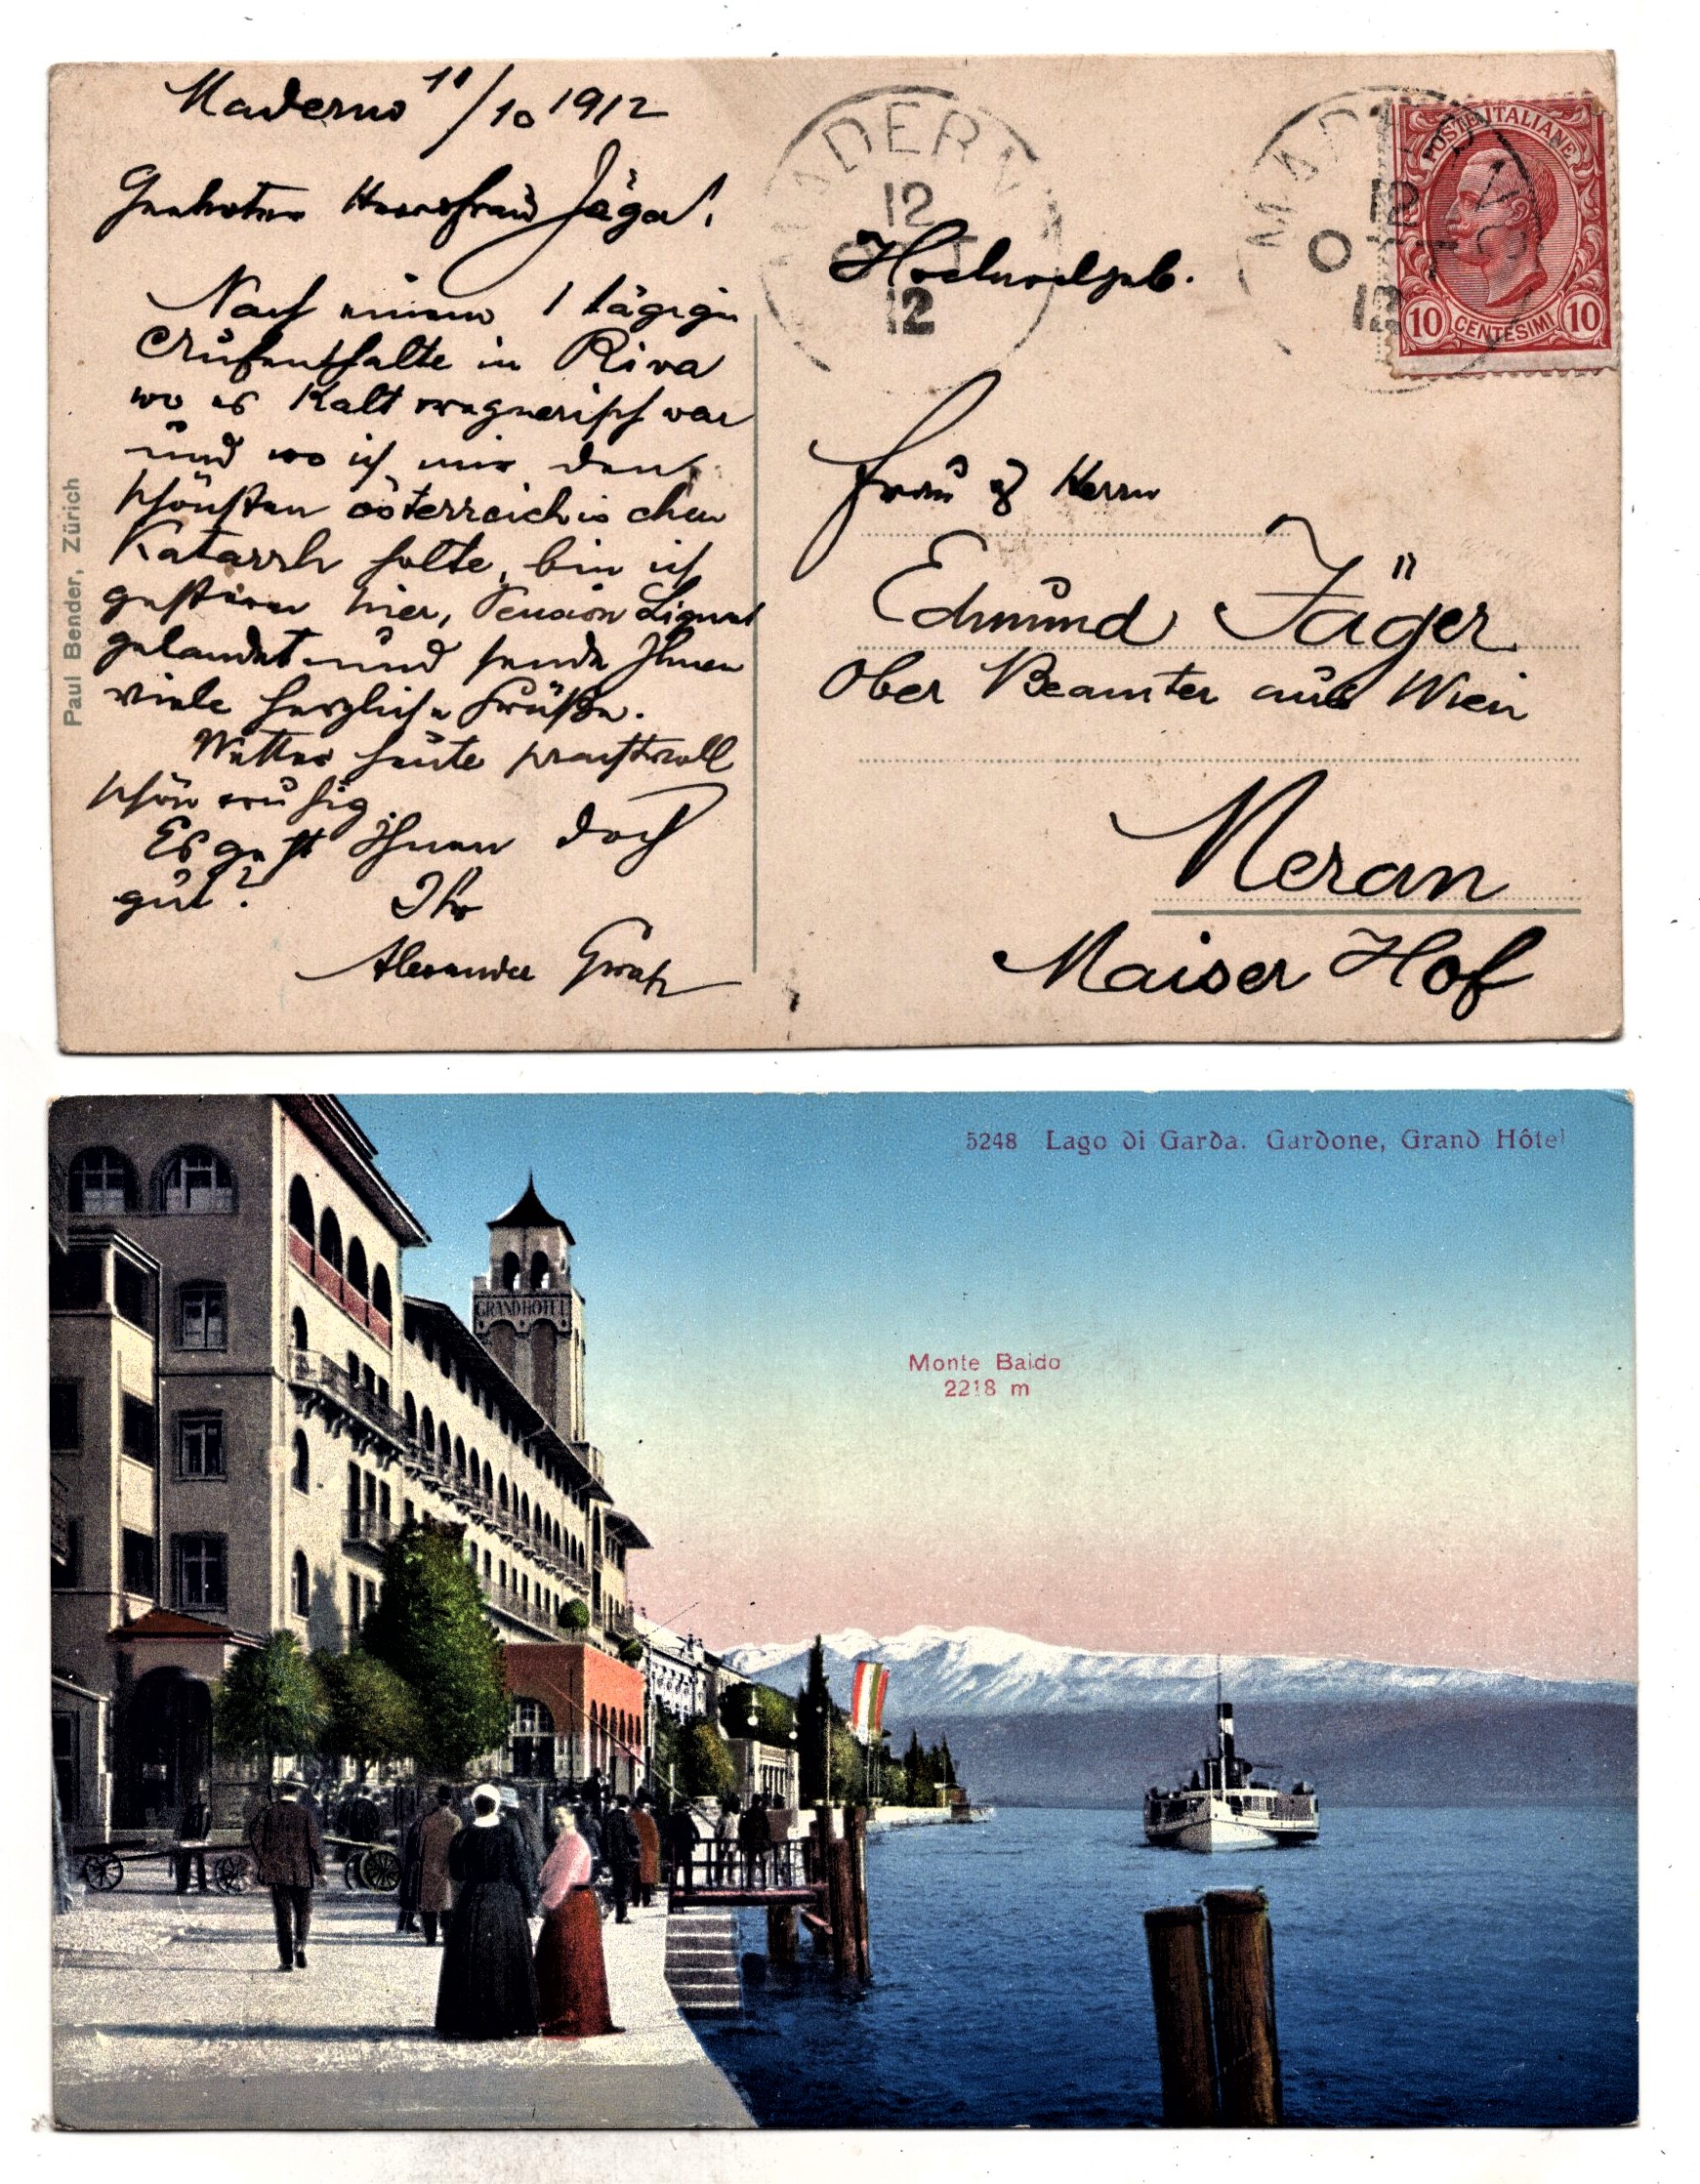 Maderno 11/10 1912
Geehrteste Hausfrau Jäger!
Nach einem 1 tägigen
Aufenthalte in Riva
wo es kalt regnerisch war
und wo ich mir den
schönsten österreichischen
Katarrh holte, bin ich
gestern hier, Pension
gelandet und sende Ihnen
viele herzliche Grüße.
Wetter heute prachtvoll
schön ruhig
Es geht Ihnen doch
gut?
Ihr
Alexander
Paul Bender, Zürich
MADERNO
12
OTT
12
MADERNO
12
OTT
12
POSTE ITALIANE
10 CENTESIMI 10
Hochwolgeb.
Frau & Herrn
Edmund Jäger
Ober Beamter aus Wien
Meran
Maiser Hof
5248 Lago di Garda. Gardone, Grand Hôtel
GRAND HOTEL
Monte Baldo
2218 m